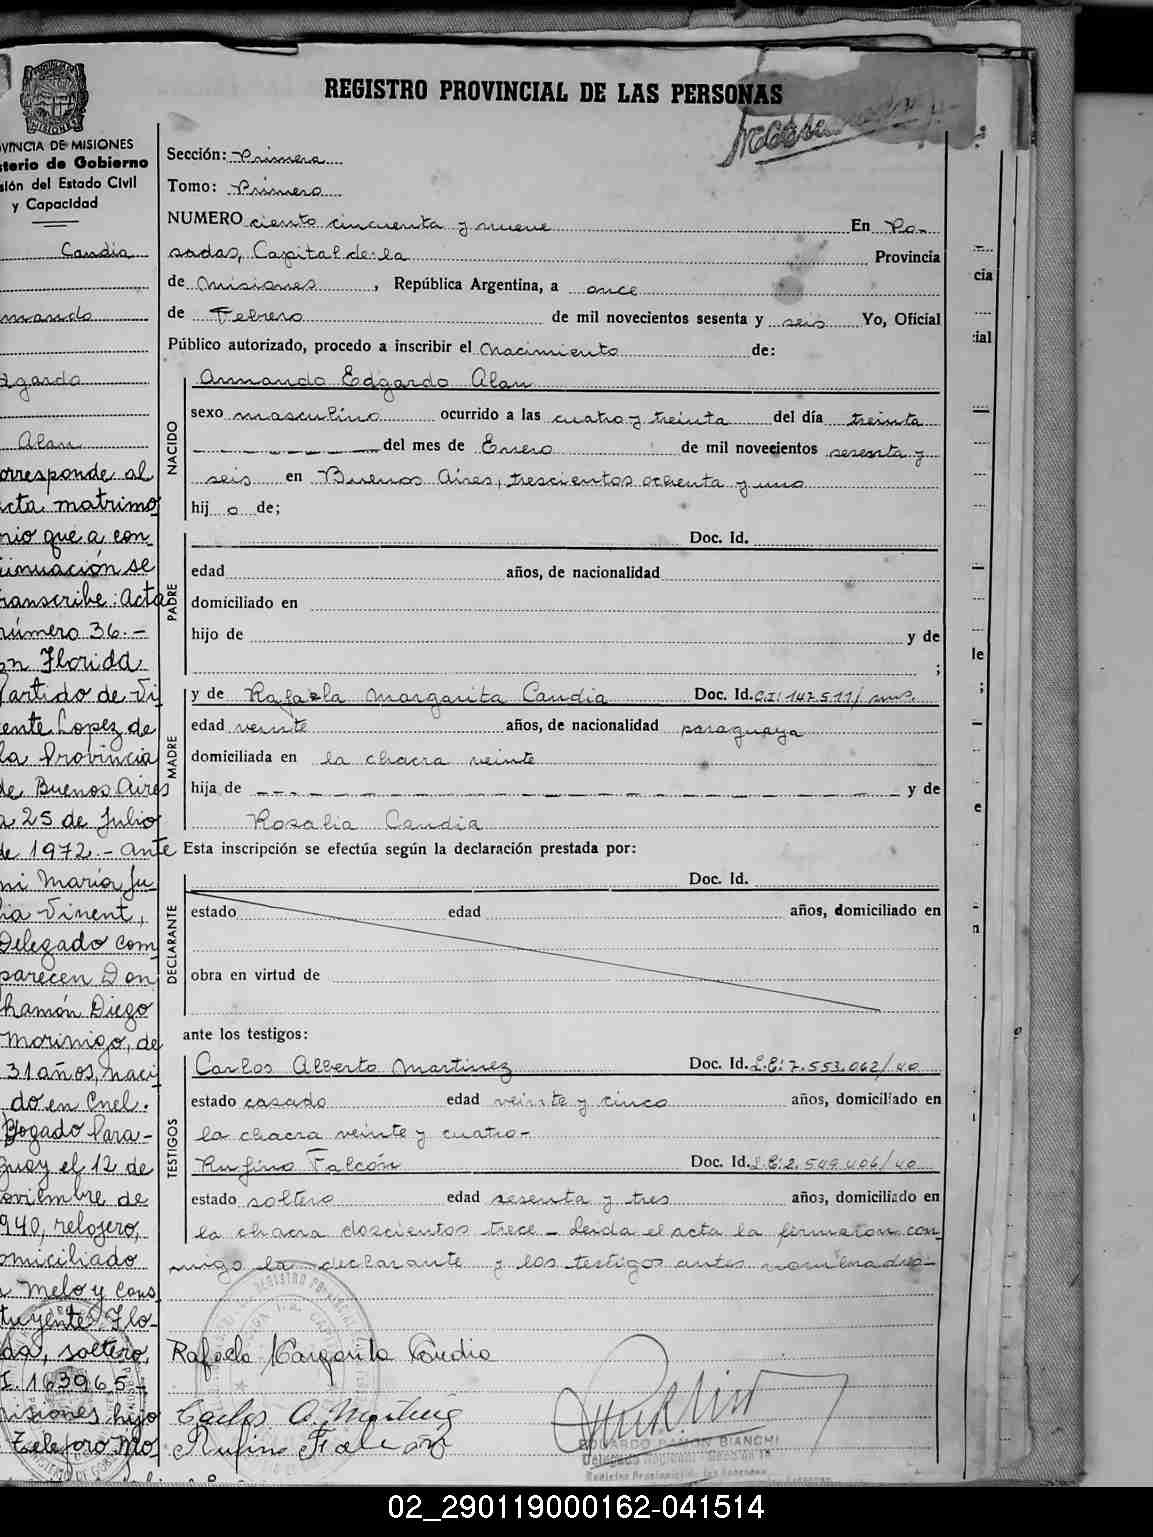 REGISTRO PROVINCIAL DE LAS PERSONAS
VINCIA DE MISIONES
sterio de Gobierno
sión del Estado Civil
y Capacidad
Candia
mando
dgardo
Alan
orresponde al
acta matrimo
nio que a con-
tinuación se
transcribe: Acta
número 36.-
en Florida
Partido de Vi
cente Lopez de
la Provincia
de Buenos Aires
a 25 de Julio
de 1972.- ante
mi María Ju
lia Vinent,
Delegado com
parecen Don
Ramón Diego
Morinigo, de
31 años, naci
do en Cnel.
Bogado Para-
guay el 12 de
noviembre de
1940, relojero,
domiciliado
Melo y Cons
tuyente Flo-
da, soltero,
I. 163965-
Misiones hijo
Teleforo Mo
Sección: Primera
Tomo: Primero
NUMERO ciento cincuenta y nueve En Po-
sadas, Capital de la Provincia
de Misiones, República Argentina, a once
de Febrero de mil novecientos sesenta y seis Yo, Oficial
Público autorizado, procedo a inscribir el Nacimiento de:
NACIDO
Armando Edgardo Alan
sexo masculino ocurrido a las cuatro y treinta del día treinta
del mes de Enero de mil novecientos sesenta y
seis en Buenos Aires, trescientos ochenta y uno
hijo de;
PADRE
Doc. Id.
edad años, de nacionalidad
domiciliado en
hijo de y de
;
MADRE
y de Rafaela Margarita Candia Doc. Id. C.I: 147.511/ mnS.
edad veinte años, de nacionalidad paraguaya
domiciliada en la chacra veinte
hija de y de
Rosalia Candia
Esta inscripción se efectúa según la declaración prestada por:
DECLARANTE
Doc. Id.
estado edad años, domiciliado en
obra en virtud de
ante los testigos:
TESTIGOS
Carlos Alberto Martinez Doc. Id. L.E: 7.553.062/40
estado casado edad veinte y cinco años, domiciliado en
la chacra veinte y cuatro-
Rufino Falcón Doc. Id. L.E: 2.549.406/40
estado soltero edad sesenta y tres años, domiciliado en
la chacra doscientos trece - Leida el acta la firmaron con
migo la declarante y los testigos antes nombrados-
Rafaela Margarita Candia
Carlos A. Martinez
Rufino Falcón
EDUARDO RAMON BIANCHI
02_290119000162-041514